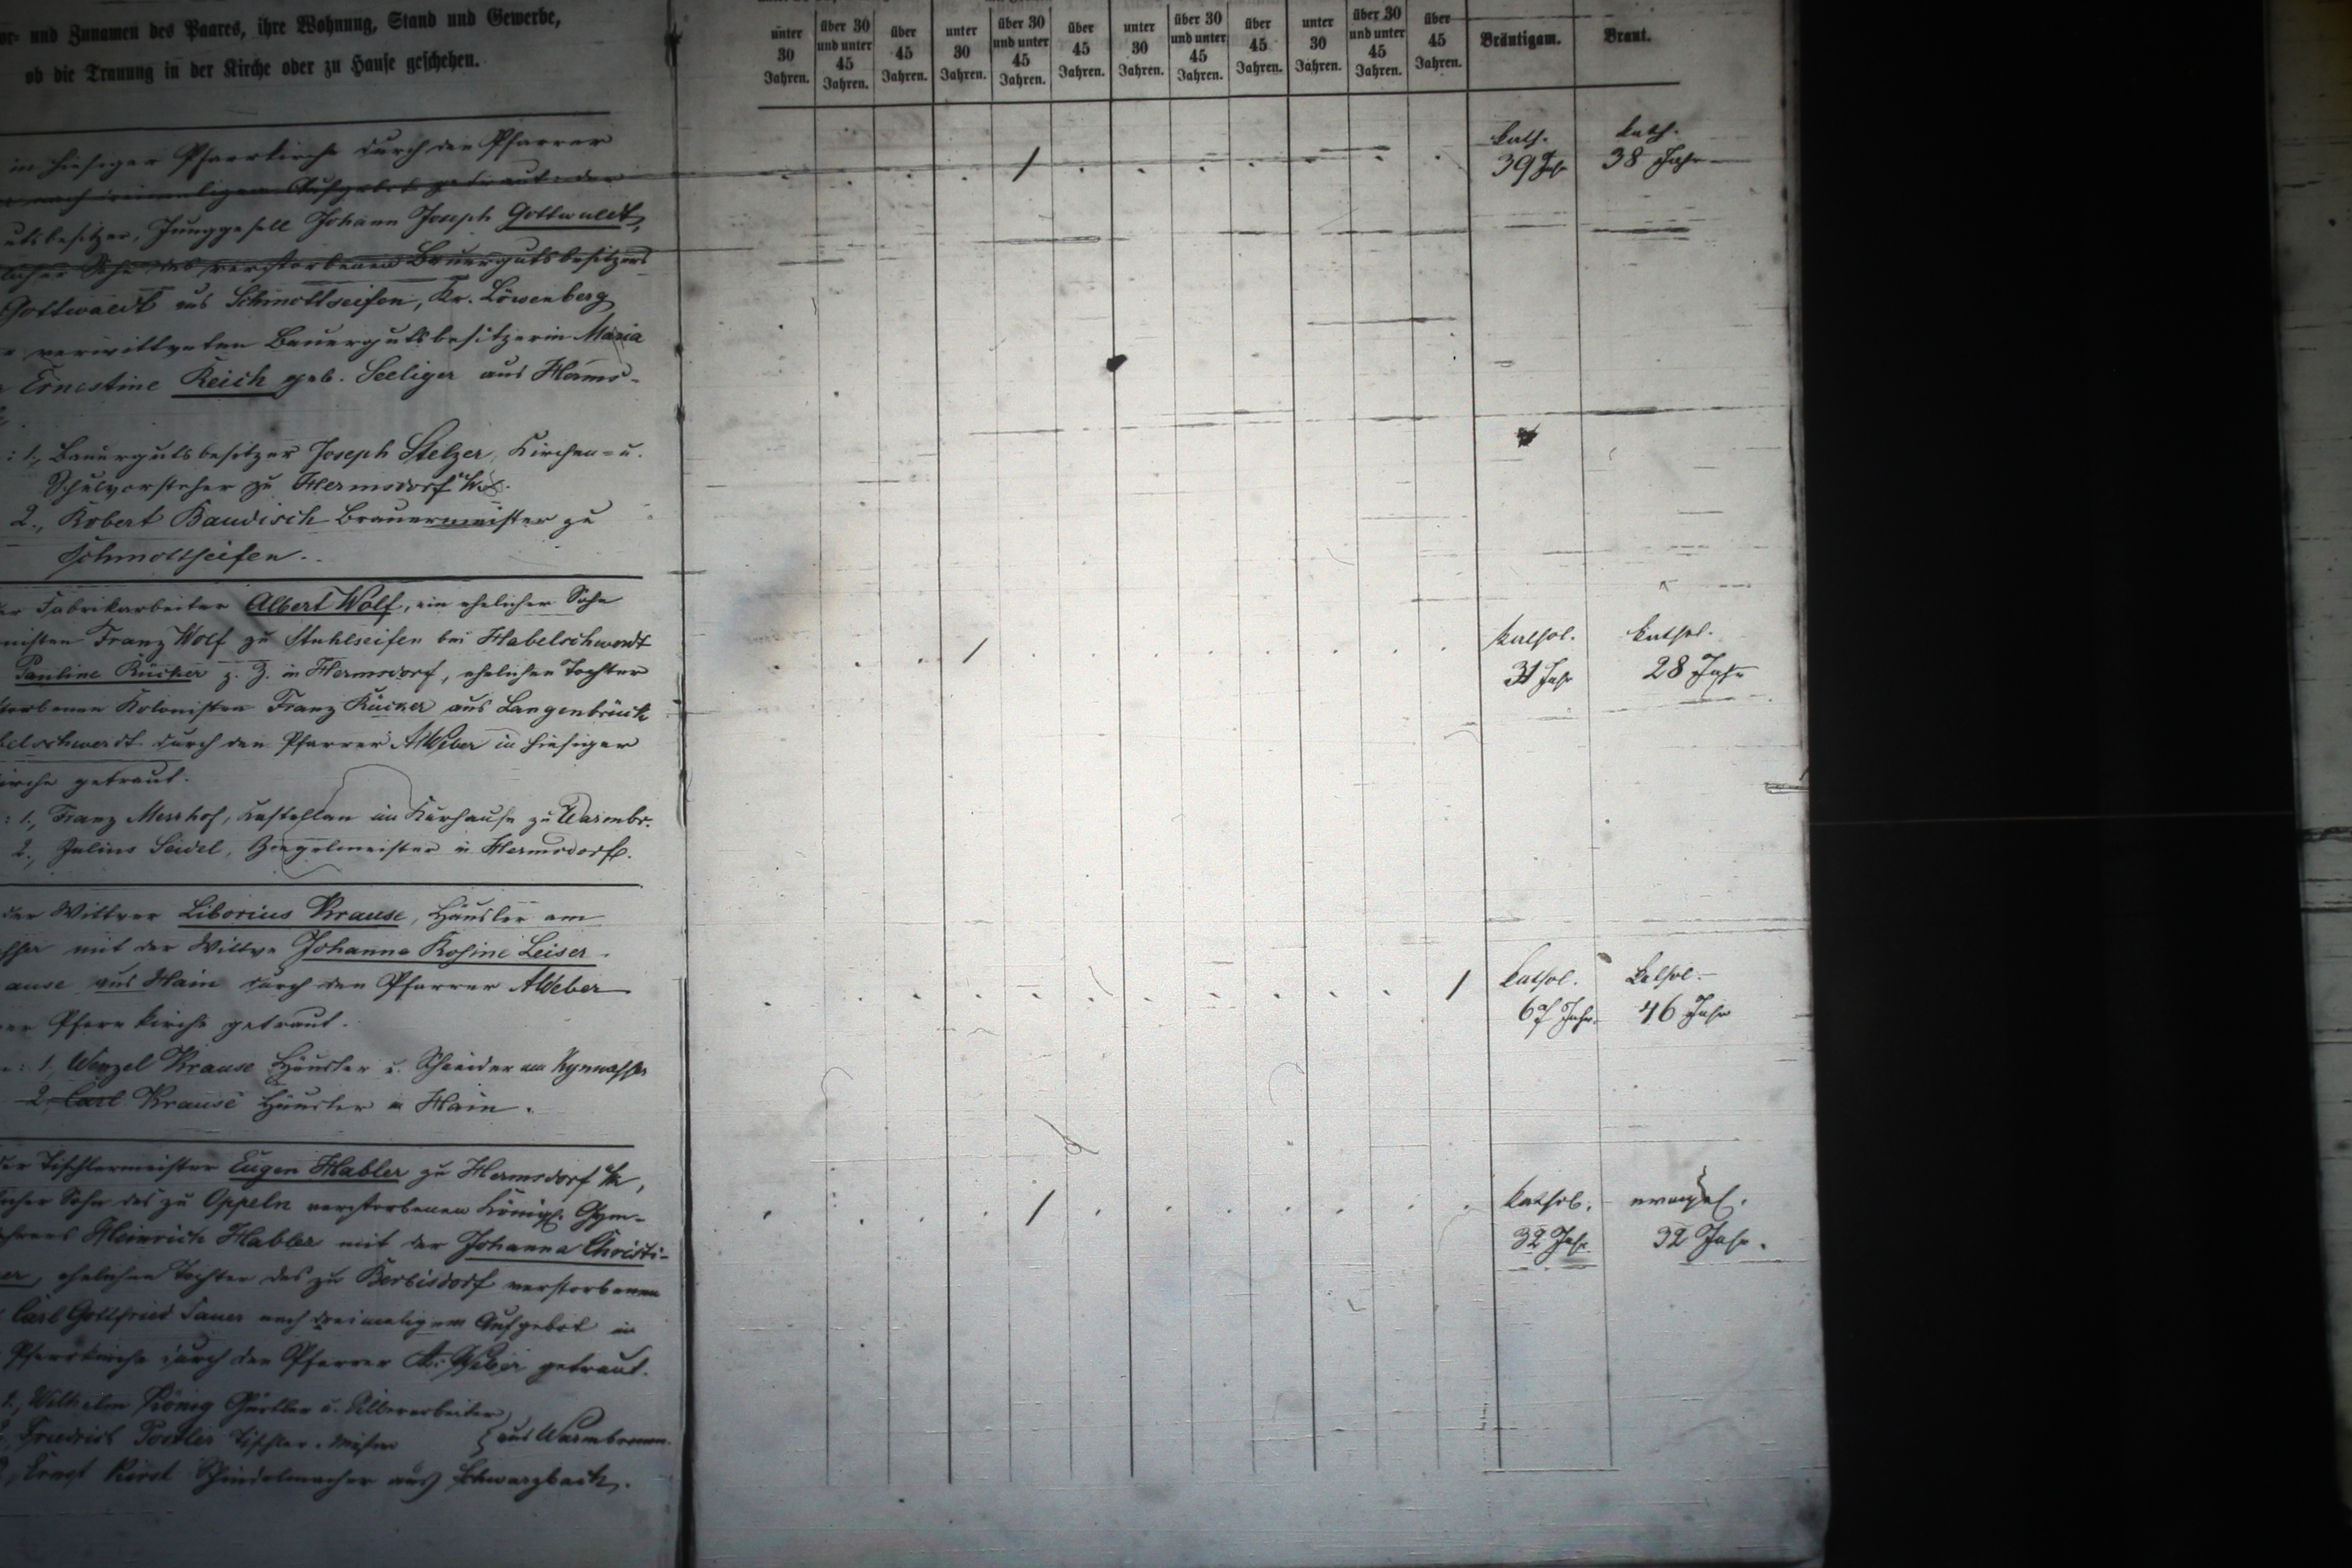 or- und Zunamen des Paares, ihre Wohnung, Stand und Gewerbe,
ob die Trauung in der Kirche oder zu Hause geschehen.
unter 30 Jahren.
über 30 und unter 45 Jahren.
über 45 Jahren.
unter 30 Jahren.
über 30 und unter 45 Jahren.
über 45 Jahren.
unter 30 Jahren.
über 30 und unter 45 Jahren.
über 45 Jahren.
unter 30 Jahren.
über 30 und unter 45 Jahren.
über 45 Jahren.
Bräutigam.
Braut.
in hiesiger Pfarrkirche durch den Pfarrer
nach dreimaligem Aufgebot getraut: der
utsbesitzer, Junggesell Johann Joseph Gottwaldt,
licher Sohn des verstorbenen Bauergutsbesitzers
Gottwaldt aus Schmottseifen, Kr. Löwenberg
verwittweten Bauergutsbesitzerin Maria
Ernestine Reich geb. Seeliger aus Herms-
: 1., Bauergutsbesitzer Joseph Stelzer, Kirchen- u.
Schulvorsteher zu Hermsdorf
2., Robert Baudisch Brauermeister zu
Schmottseifen.
kath. kath.
39 J. 38 Jahr
er Fabrikarbeiter Albert Wolf, ein ehelicher Sohn
nisten Franz Wolf zu Stuhlseifen bei Habelschwerdt
Pauline Rücker z. Z. in Hermsdorf, ehelichen Tochter
storbenen Kolonisten Franz Rücker aus Langenbrück
belschwerdt durch den Pfarrer A Weber in hiesiger
irche getraut.
: 1., Franz Merrhof, Kastellan im Kurhause zu Warmbr.
2., Julius Seidel, Ziegelmeister in Hermsdorf.
kathol. kathol.
31 Jahr 28 Jahr
der Wittwer Liborius Krause, Häusler am
sser mit der Wittwe Johanna Rosine Leiser
ause aus Hain durch den Pfarrer A Weber
er Pfarrkirche getraut.
: 1., Wenzel Krause Häusler u. Schneider am Kynwasser
2. Carl Krause Häusler in Hain.
kathol. kathol.
67 Jahr 46 Jahr
der Tischlermeister Eugen Habler zu Hermsdorf /K,
licher Sohn des zu Oppeln verstorbenen Königl. Gym-
hrers Heinrich Habler mit der Johanna Christi-
er, ehelichen Tochter des zu Berbisdorf verstorbenen
Carl Gottfried Sauer nach dreimaligem Aufgebot in
Pfarrkirche durch den Pfarrer A. Weber getraut.
1., Wilhelm König Gürtler u. Silberarbeiter
Friedrich Tischler-Meister } aus Warmbrunn.
Ernst Schindelmacher aus Schwarzbach.
kathol. evangel.
32 Jahr 32 Jahr.